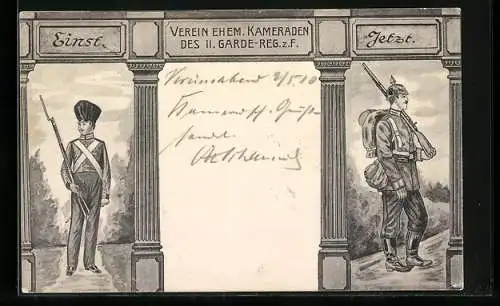 Einst.
VEREIN EHEM. KAMERADEN
DES II. GARDE-REG. z. F.
Jetzt.
Vereinsabend 8/5 10
sandt